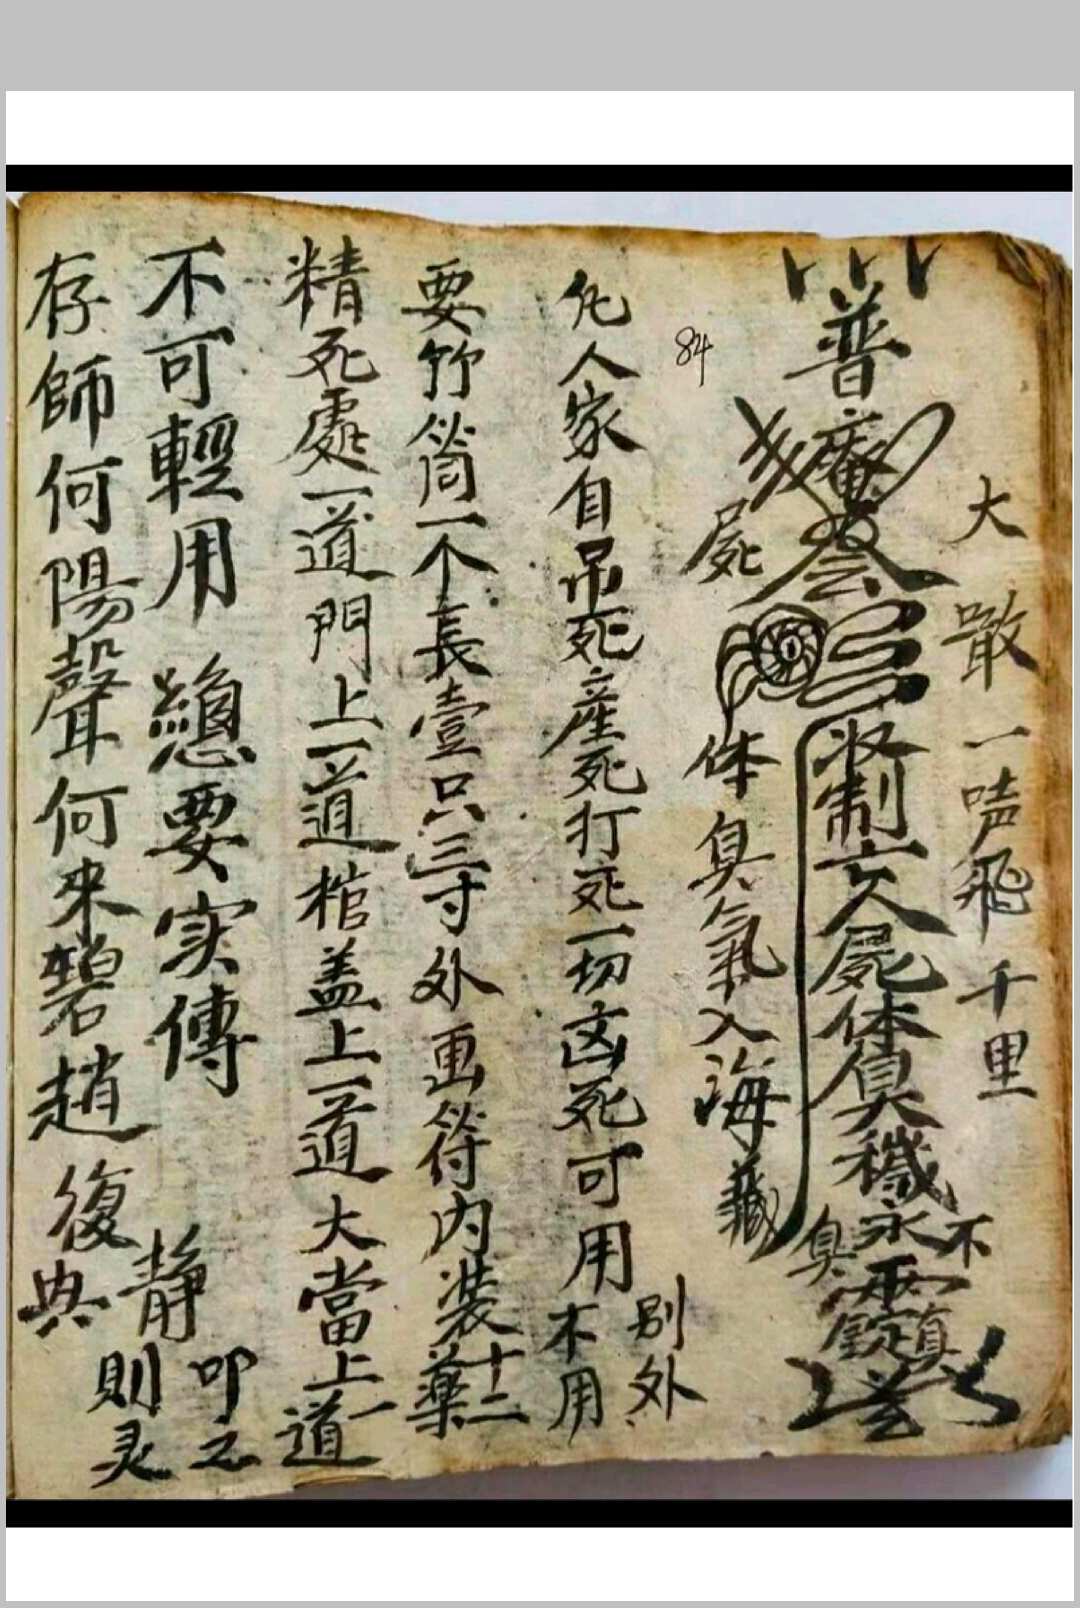 大噉一唪飛千里
普庵
收制亡人屍体臭穢永不臭
鎮
屍体臭氣入海藏
84
凡人家自吊死産死打死一切凶死可用
别外不用
要竹筒一个長壹只三寸外画符内裝十二藥
精死處一道門上一道棺盖上一道大當上一道
不可輕用 總要实傳
静則灵
叩之
存師何陽聲何来碧趙復典